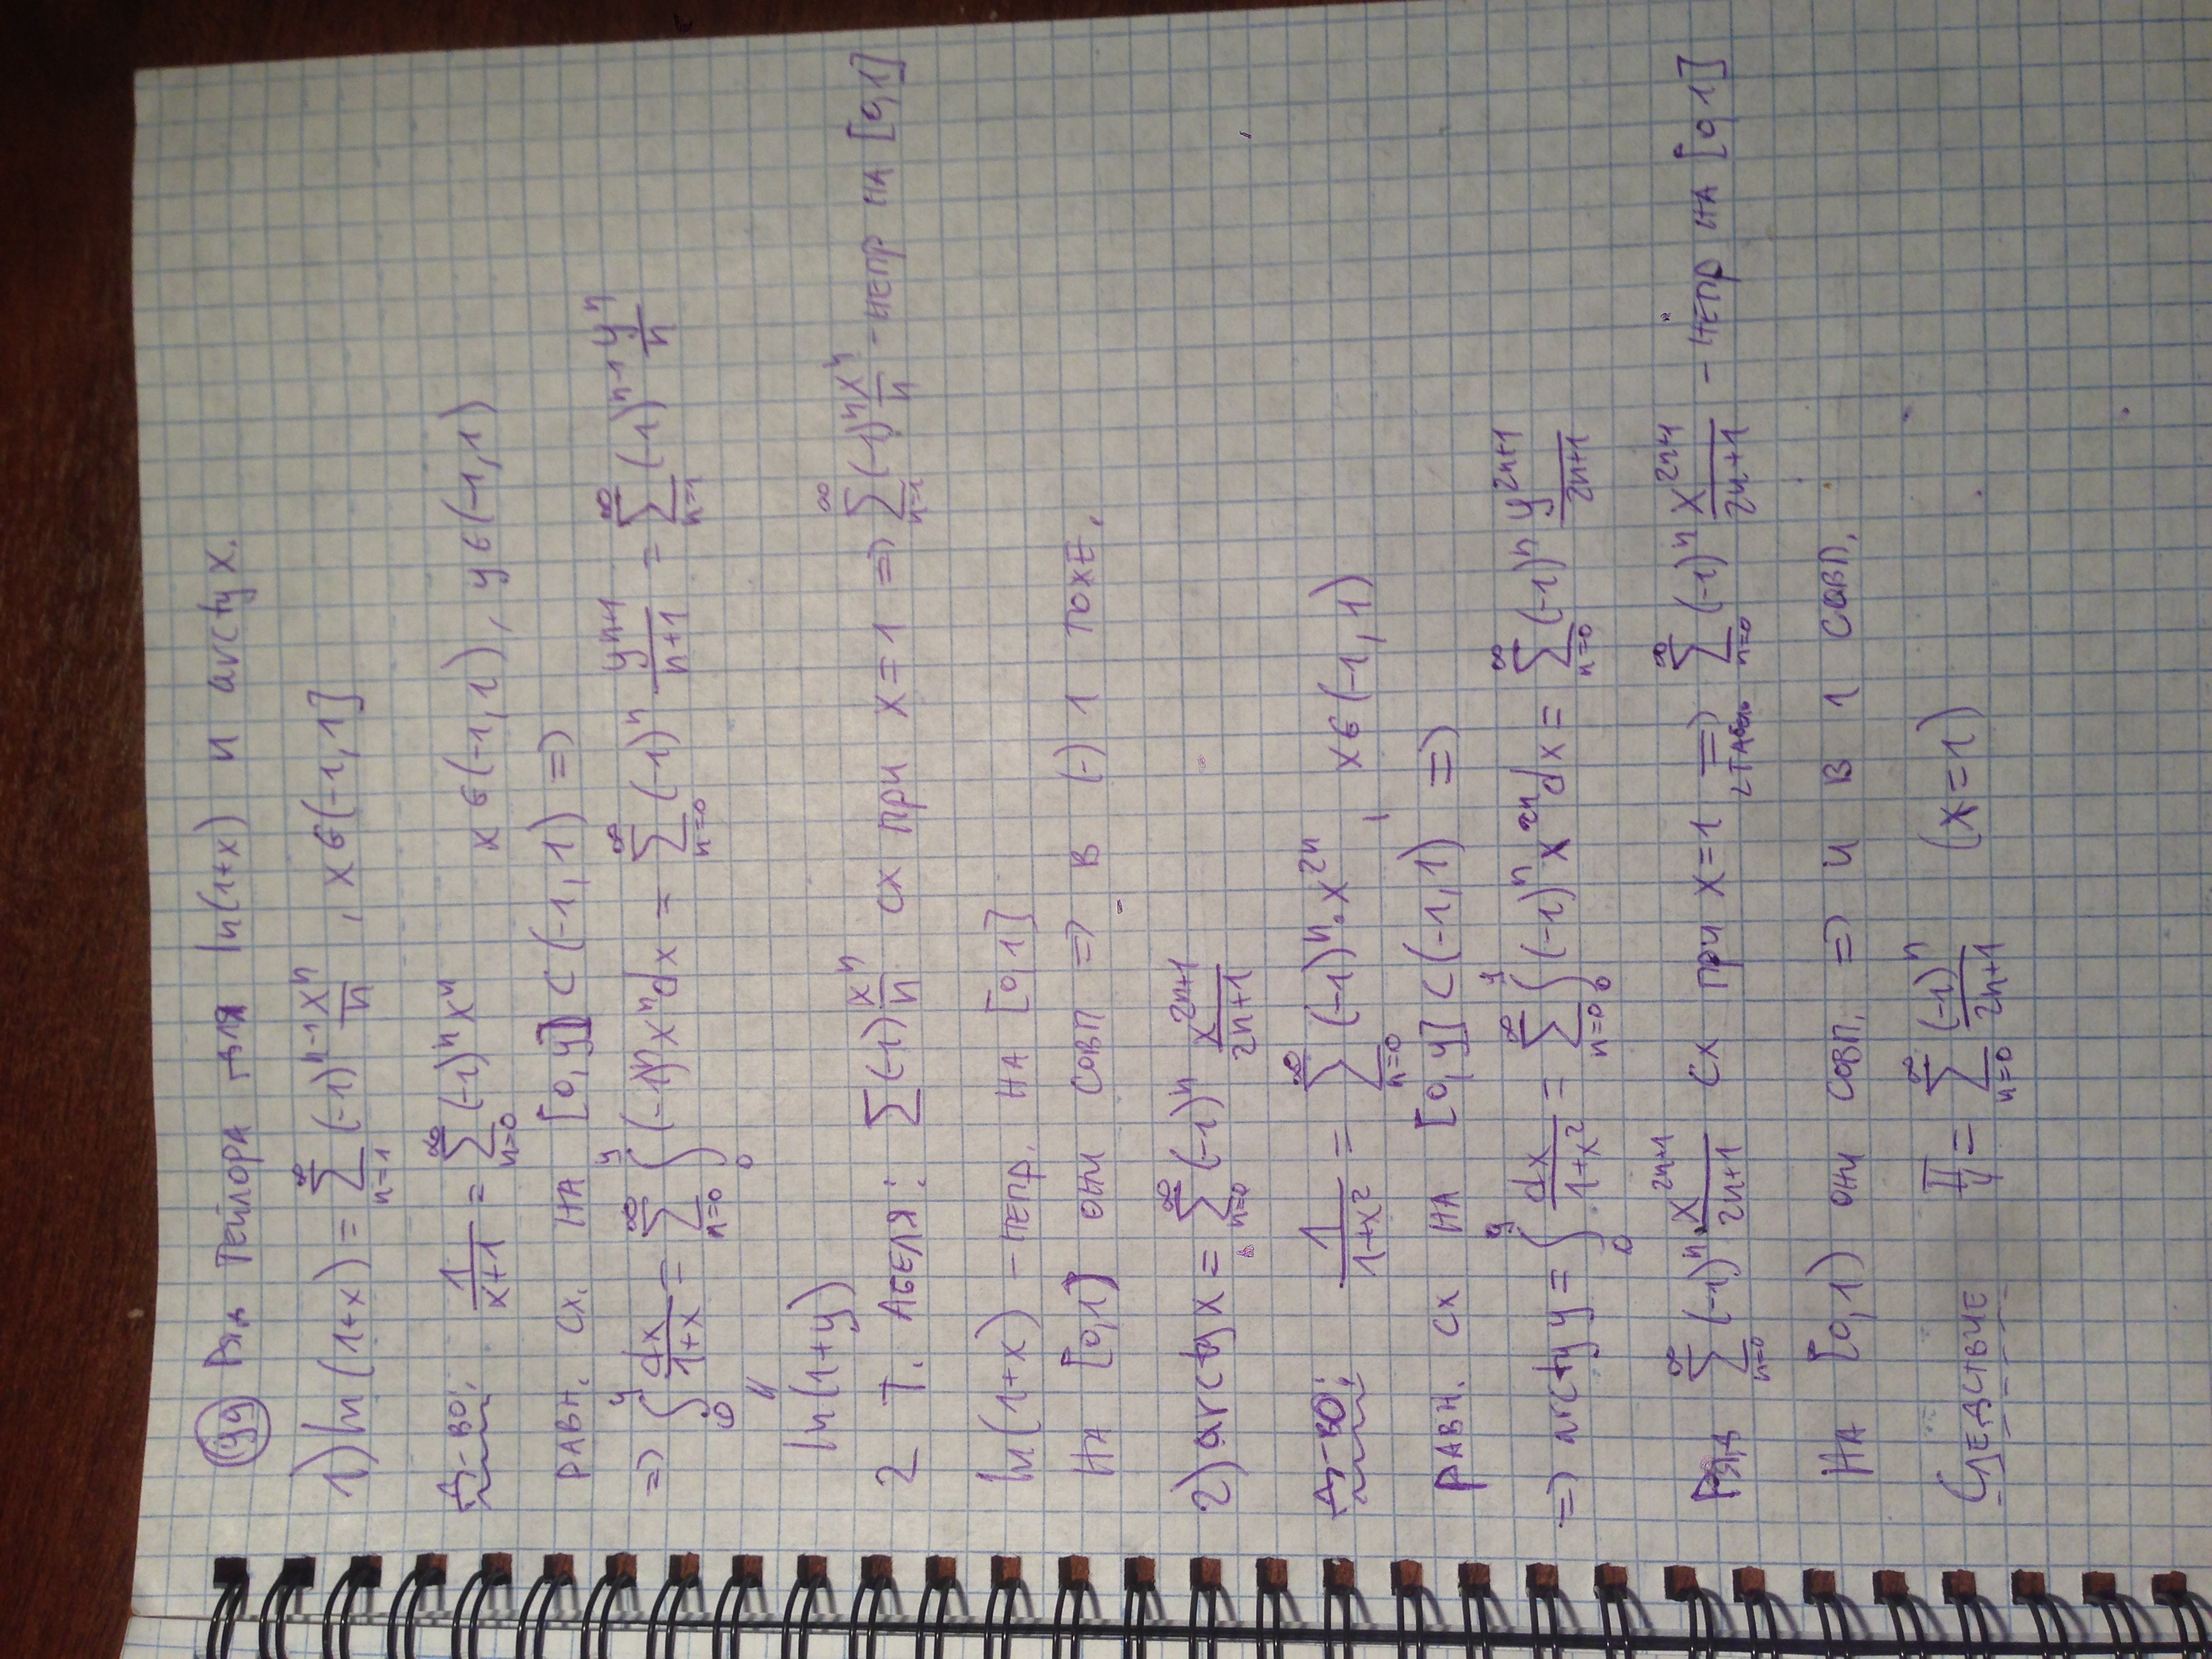 99 Ряд Тейлора для ln(1+x) и arctg x.
1) ln(1+x) = ∑_{n=1}^{∞} (-1)^{n-1} x^n/n , x∈(-1,1]
Д-во: 1/(x+1) = ∑_{n=0}^{∞} (-1)^n x^n x∈(-1,1), y∈(-1,1)
равн. сх. на [0,y] ⊂ (-1,1) =>
=> ∫_0^y dx/(1+x) = ∑_{n=0}^{∞} ∫_0^y (-1)^n x^n dx = ∑_{n=0}^{∞} (-1)^n y^{n+1}/(n+1) = ∑_{n=1}^{∞} (-1)^{n-1} y^n/n
"
ln(1+y)
2 т. Абеля: ∑(-1) x^n/n сх при x=1 => ∑_{n=1}^{∞} (-1)^n x^n/n - непр на [0,1]
ln(1+x) - непр. на [0,1]
на [0,1) они совп => в (·) 1 тоже.
2) arctg x = ∑_{n=0}^{∞} (-1)^n x^{2n+1}/(2n+1)
Д-во: 1/(1+x^2) = ∑_{n=0}^{∞} (-1)^n · x^{2n} , x∈(-1,1)
равн. сх на [0,y] ⊂ (-1,1) =>
=> arctg y = ∫_0^y dx/(1+x^2) = ∑_{n=0}^{∞} ∫_0^y (-1)^n x^{2n} dx = ∑_{n=0}^{∞} (-1)^n y^{2n+1}/(2n+1)
Ряд ∑_{n=0}^{∞} (-1)^n · x^{2n+1}/(2n+1) сх при x=1 => 2 т Абеля ∑_{n=0}^{∞} (-1)^n x^{2n+1}/(2n+1) - непр на [0,1]
На [0,1) они совп. => и в 1 совп.
Следствие π/4 = ∑_{n=0}^{∞} (-1)^n/(2n+1) (x=1)